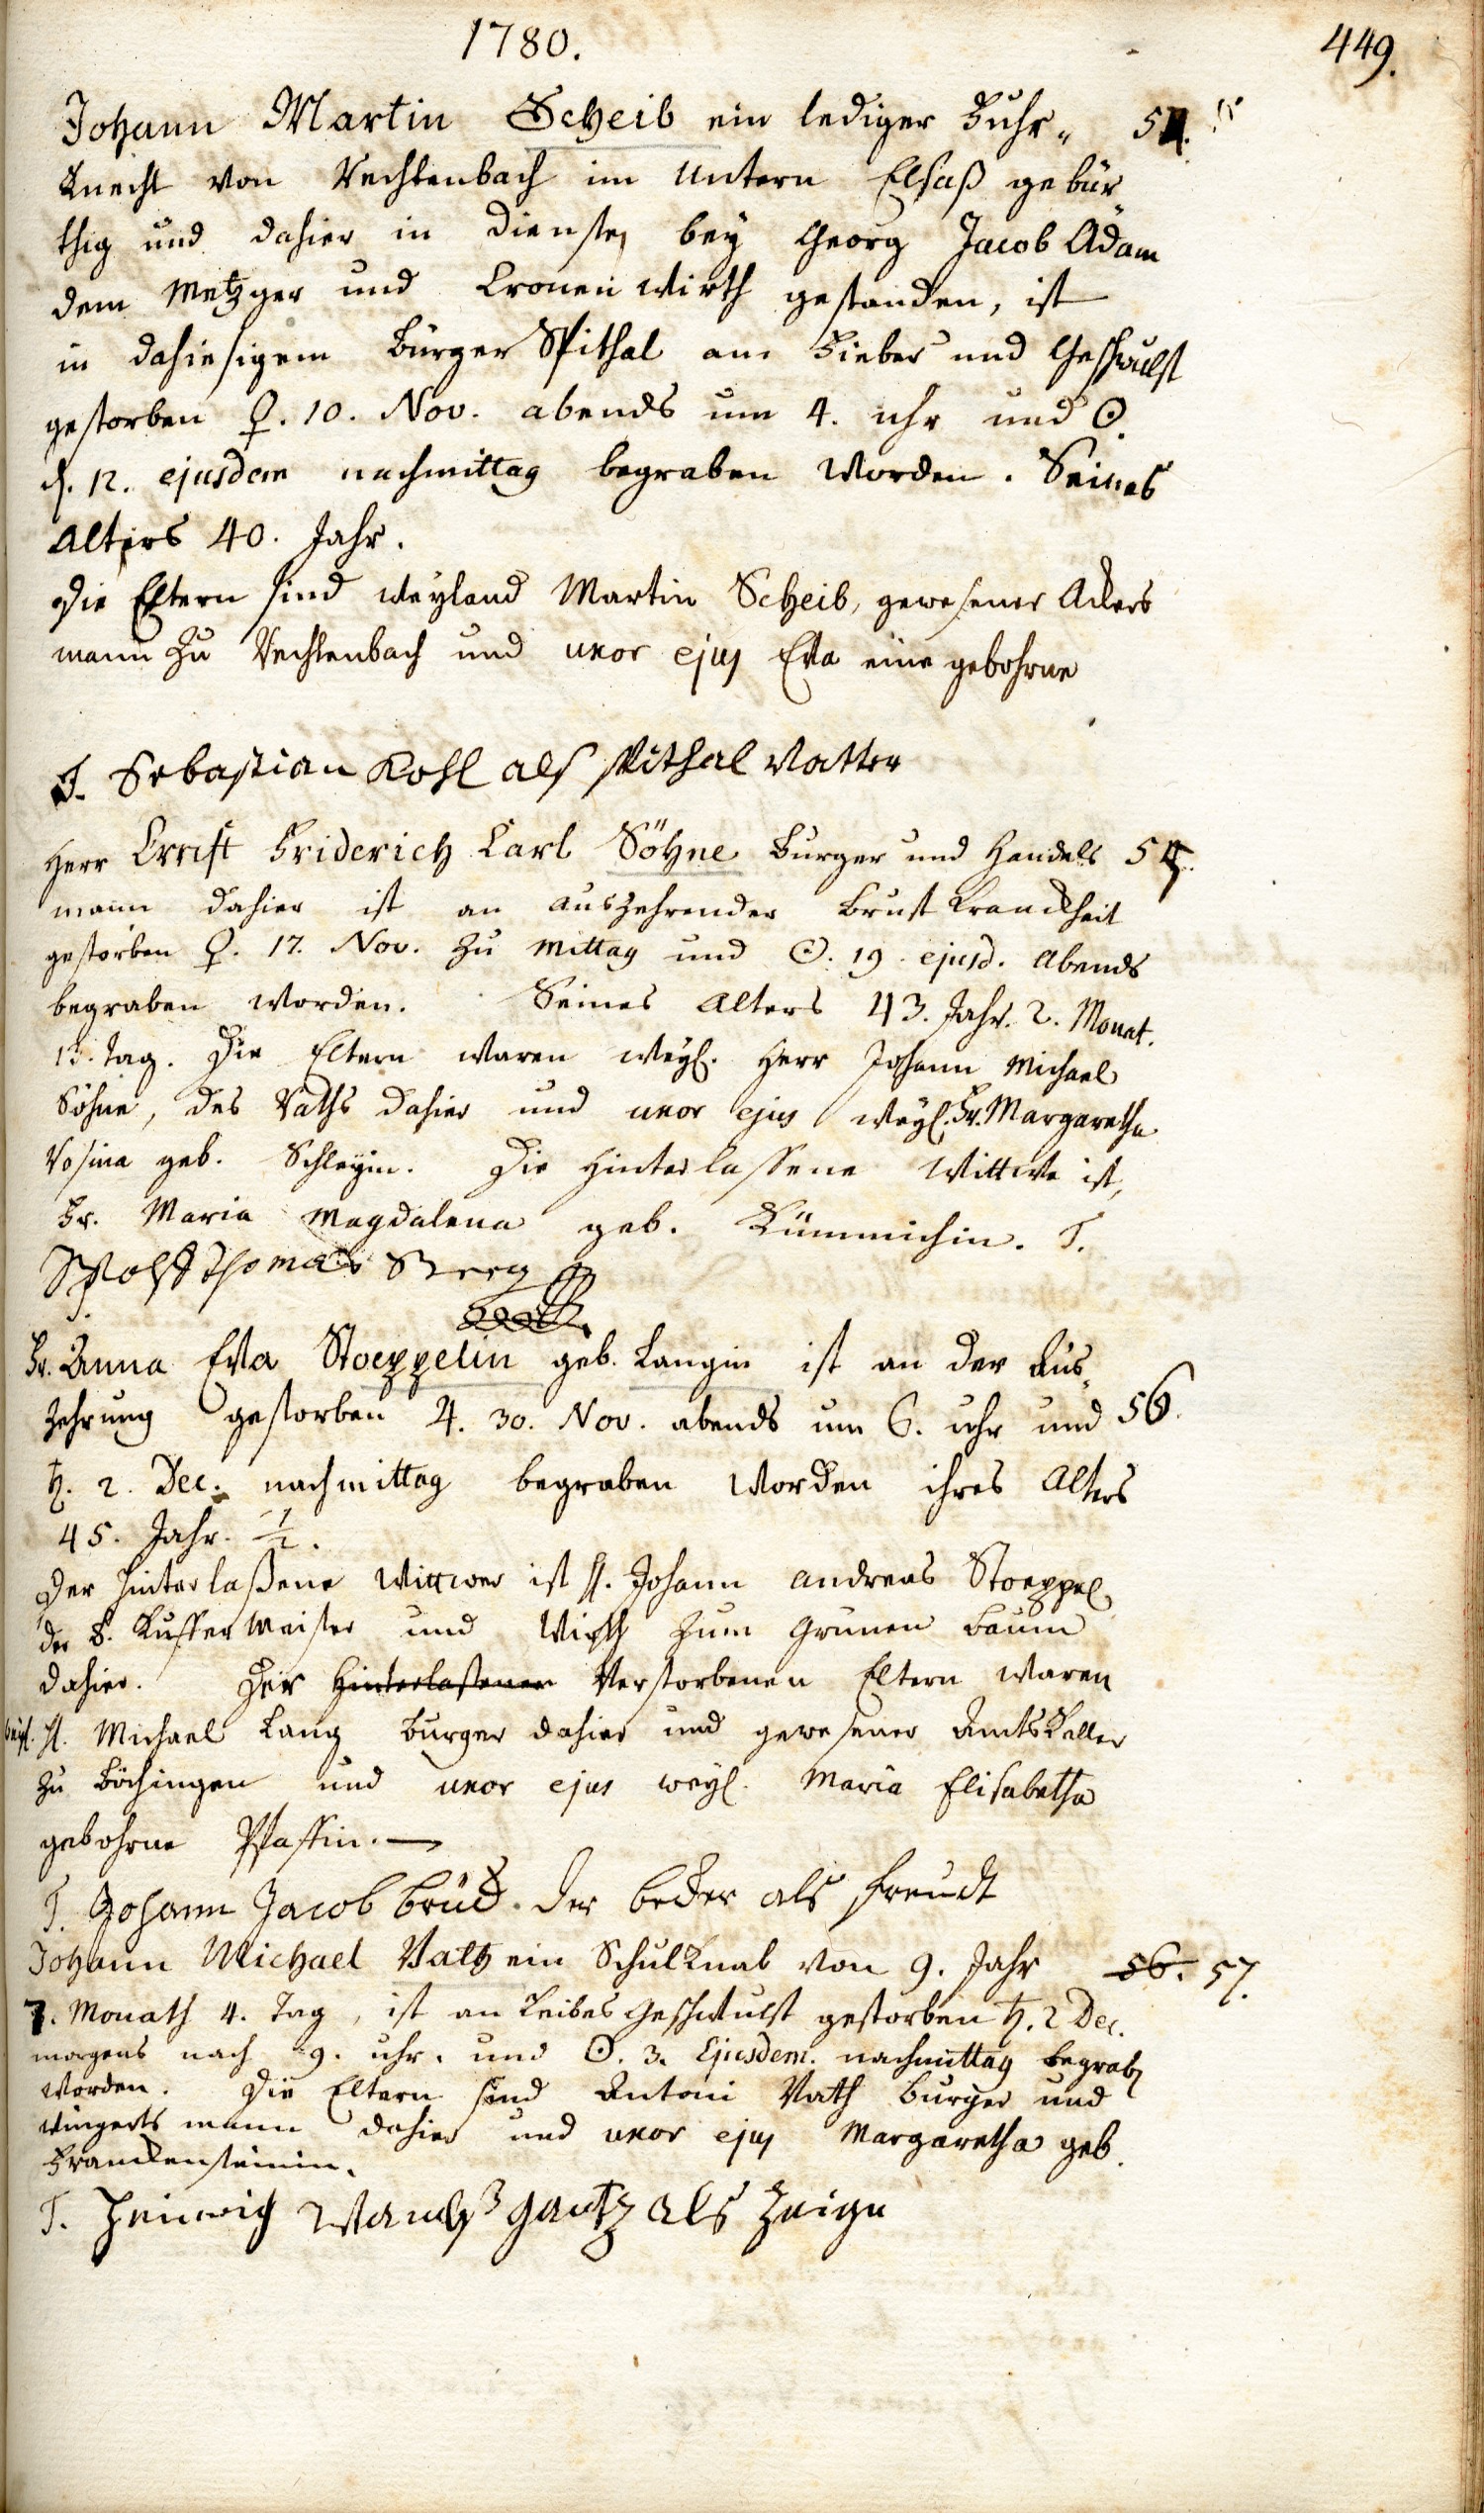 1780.
449.
Johann Martin Scheib ein lediger Fuhr„ 54.
knecht von Rechtenbach im untern Elsaß gebür„
thig und dahier in Diensten bey Georg Jacob Adam
dem Metzger und Cronenwirth gestanden, ist
in dahiesigem Bürger Spithal am Fieber und Geschwulst
gestorben ♀. 10. Nov. abends um 4. uhr und ☉.
d. 12. ejusdem nachmittag begraben worden. Seines
Alters 40. Jahr.
Die Eltern sind weyland Martin Scheib, gewesener Ackers
mann zu Rechtenbach und uxor ejus Eva eine gebohrne
T. Sebastian Kohl als spithal Vatter
Herr Ernst Friderich Carl Söhne Burger und Handels 55.
mann dahier ist an auszehrender Brust Kranckheit
gestorben ♀. 17. Nov. zu mittag und ☉. 19. ejusd. Abends
begraben worden. Seines Alters 43. Jahr. 2. Monat.
13. Tag. Die Eltern waren weyl. Herr Johann Michael
Söhne, des Raths dahier und uxor ejus weyl. Fr. Margaretha
Rosina geb. Schleyin. Die Hinterlassene Wittwe ist,
Fr. Maria Magdalena geb. Kümmichin. T.
Thomas
Fr. Anna Eva Stoeppelin geb. Langin ist an der Aus„
zehrung gestorben ♃. 30. Nov. abends um 6. uhr und 56.
♄. 2. Dec. nachmittag begraben worden ihres Alters
45. Jahr. 1/2.
Der Hinterlaßene Wittwer ist H. Johann Andreas Stoeppel
der 8. Kuffer Meister und Wirth zum Grünen Baum
dahier. Der Hinterlaßenen Verstorbenen Eltern waren
weyl. H. Michael Lang Burger dahier und gewesener Amtskeller
zu Böchingen und uxor ejus weyl. Maria Elisabetha
gebohrne Pfaffin.
T. Johann Jacob Brück. der becker als freudt
Johann Michael Rath ein Schulknab von 9. Jahr 56. 57.
7. Monath 4. Tag, ist an Leibes Geschwulst gestorben ♄. 2 Dec.
morgens nach 9. uhr. und ☉. 3. Ejusdem. nachmittag begraben
worden. Die Eltern sind Antoni Rath Burger und
Wingerts mann dahier und uxor ejus Margaretha geb.
Franckensteinin.
T. als Zeige